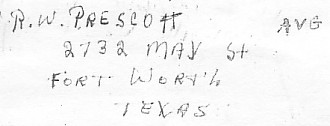 R. W. PRESCOTT AVG
2732 MAY St
FORT WORTH
TEXAS